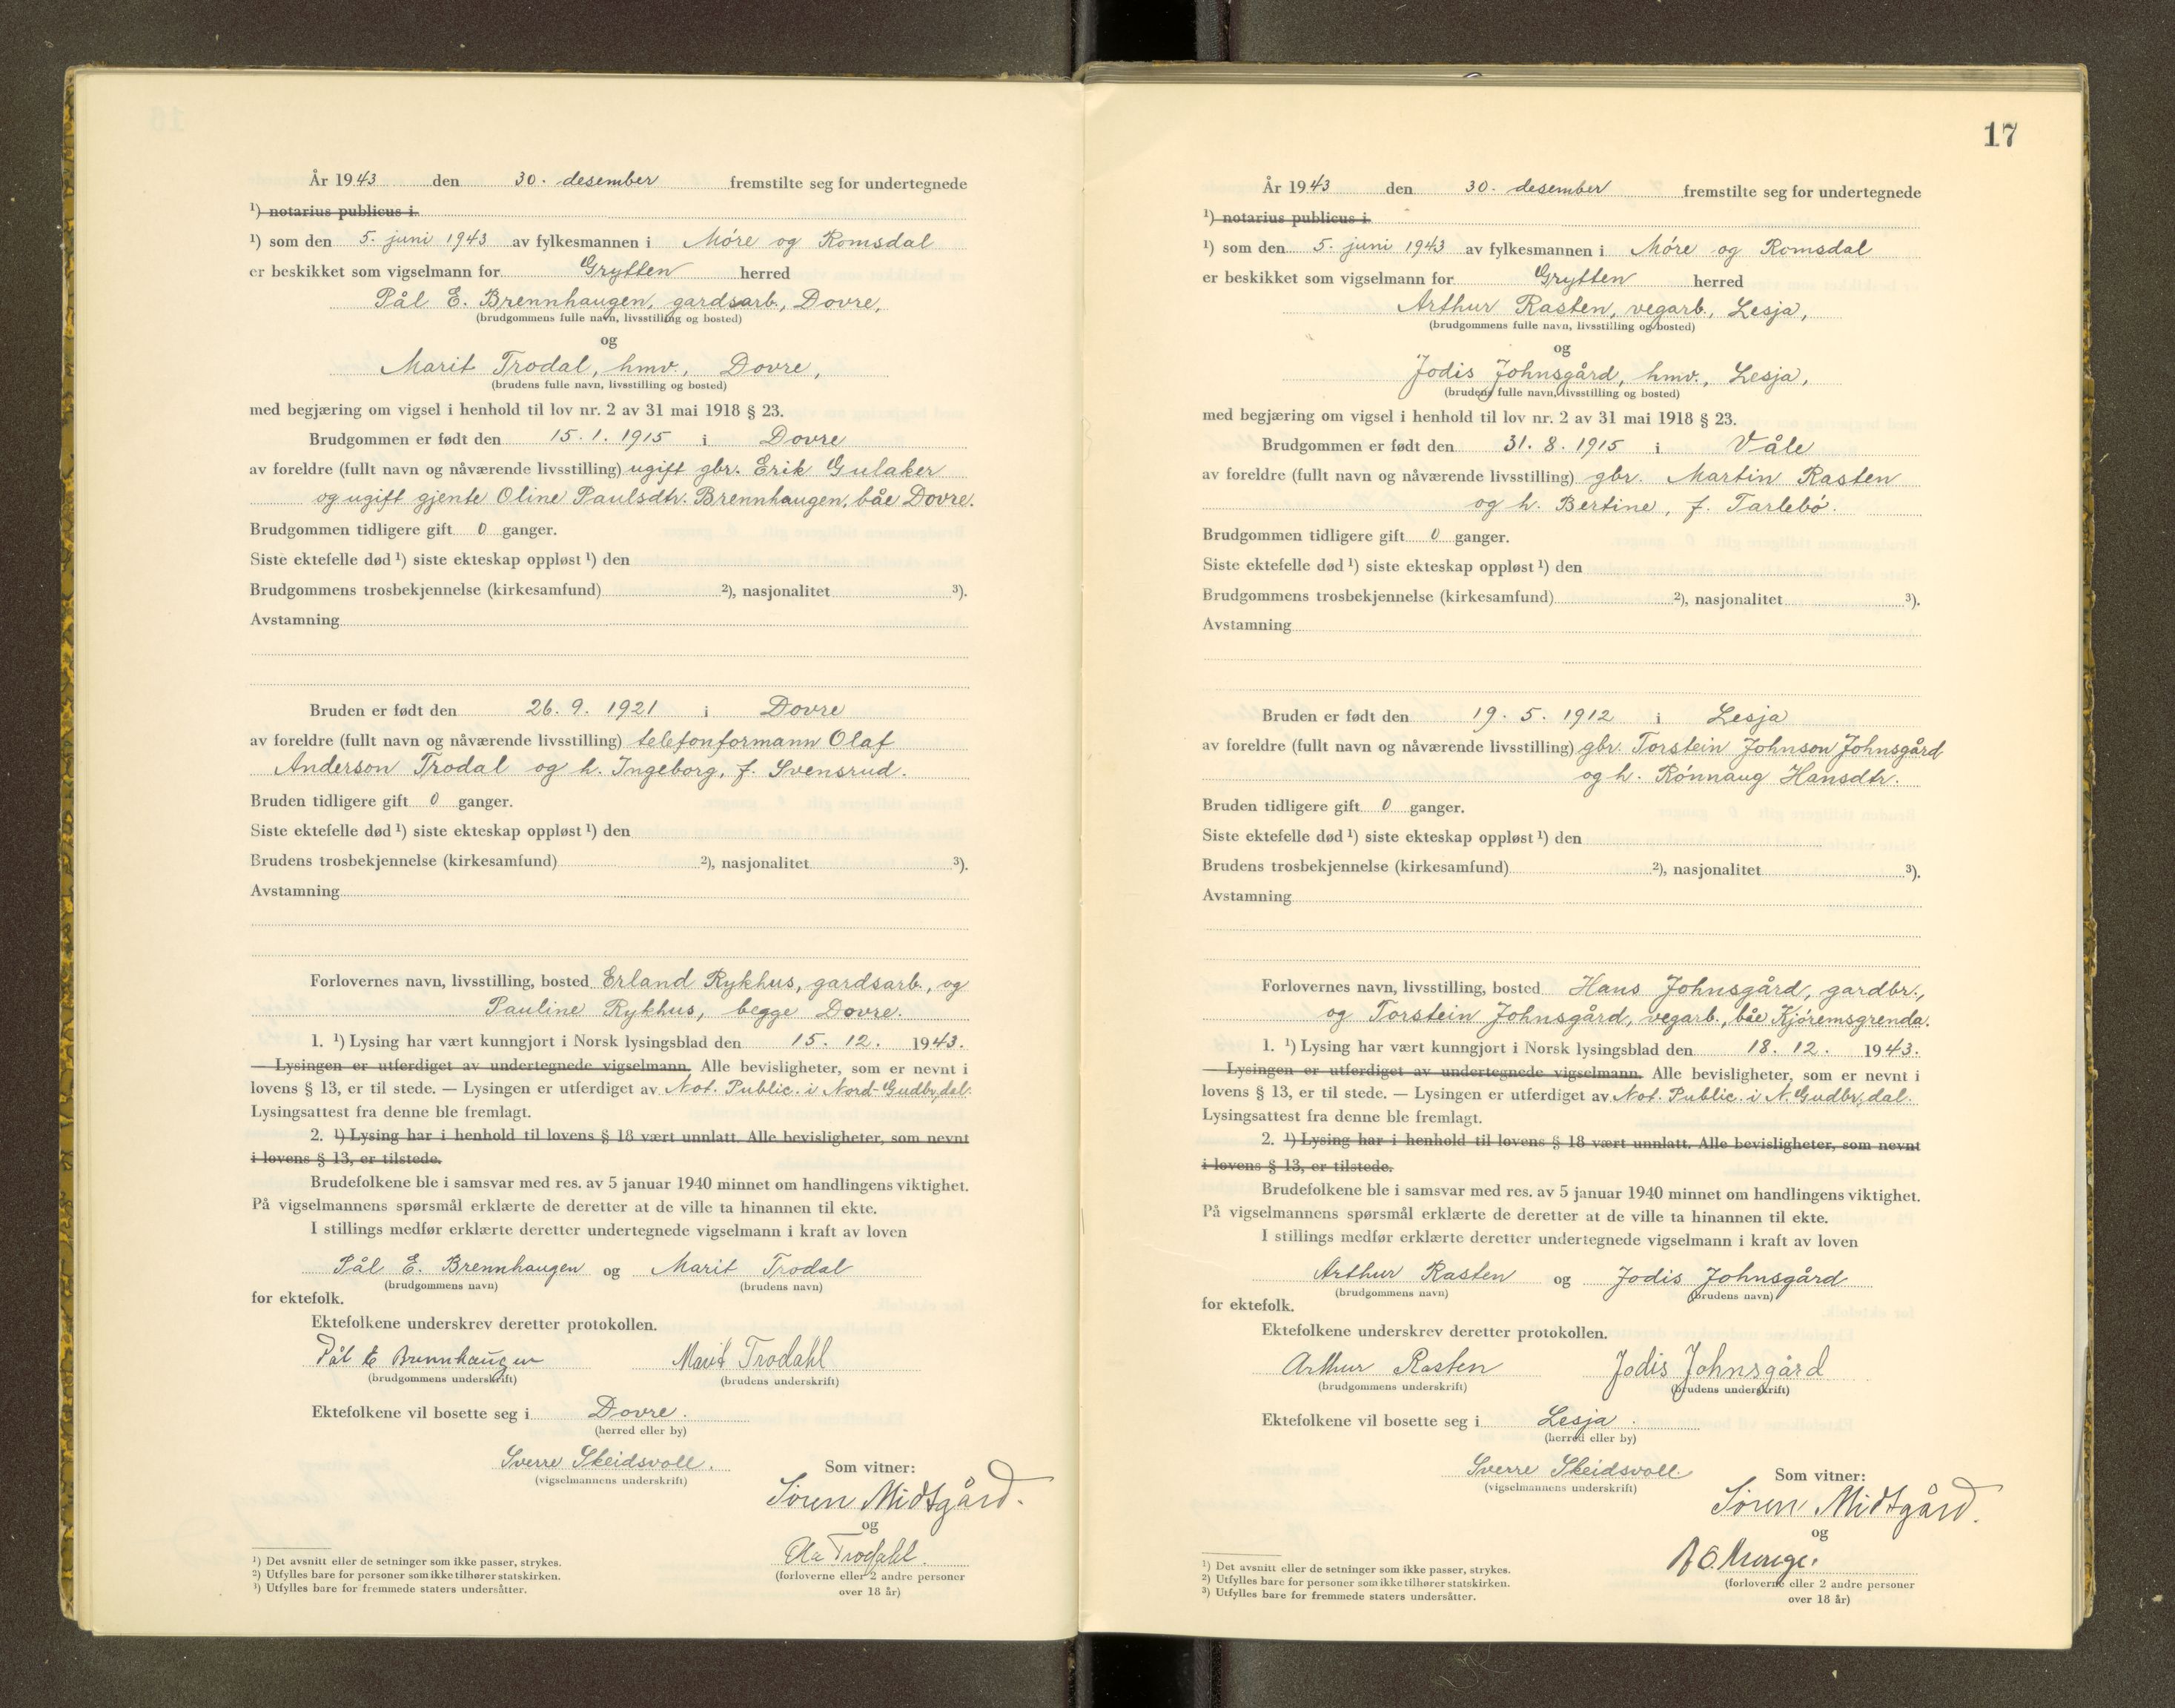 År 1943 den 30. desember fremstilte seg for undertegnede
¹) notarius publicus i
¹) som den 5. juni 1943 av fylkesmannen i Møre og Romsdal
er beskikket som vigselmann for Grytten herred
Pål E. Brennhaugen, gardsarb., Dovre,
(brudgommens fulle navn, livsstilling og bosted)
og
Marit Trodal, hmv., Dovre,
(brudens fulle navn, livsstilling og bosted)
med begjæring om vigsel i henhold til lov nr. 2 av 31 mai 1918 § 23.
Brudgommen er født den 15. 1. 1915 i Dovre
av foreldre (fullt navn og nåværende livsstilling) ugift gbr. Erik Gulaker
og ugift gjente Oline Paulsdtr. Brennhaugen, båe Dovre.
Brudgommen tidligere gift 0 ganger.
Siste ektefelle død ¹) siste ekteskap oppløst ¹) den
Brudgommens trosbekjennelse (kirkesamfund) ²), nasjonalitet ³).
Avstamning
Bruden er født den 26. 9. 1921 i Dovre
av foreldre (fullt navn og nåværende livsstilling) telefonformann Olaf
Anderson Trodal og h. Ingeborg, f. Svensrud.
Bruden tidligere gift 0 ganger.
Siste ektefelle død ¹) siste ekteskap oppløst ¹) den
Brudens trosbekjennelse (kirkesamfund) ²), nasjonalitet ³).
Avstamning
Forlovernes navn, livsstilling, bosted Erland Rykhus, gardsarb., og
Pauline Rykhus, begge Dovre.
1. ¹) Lysing har vært kunngjort i Norsk lysingsblad den 15. 12. 1943.
— Lysingen er utferdiget av undertegnede vigselmann. Alle bevisligheter, som er nevnt i
lovens § 13, er til stede. — Lysingen er utferdiget av Not. Public. i Nord-Gudbr,dal.
Lysingsattest fra denne ble fremlagt.
2. ¹) Lysing har i henhold til lovens § 18 vært unnlatt. Alle bevisligheter, som nevnt
i lovens § 13, er tilstede.
Brudefolkene ble i samsvar med res. av 5 januar 1940 minnet om handlingens viktighet.
På vigselmannens spørsmål erklærte de deretter at de ville ta hinannen til ekte.
I stillings medfør erklærte deretter undertegnede vigselmann i kraft av loven
Pål E. Brennhaugen og Marit Trodal
(brudgommens navn) (brudens navn)
for ektefolk.
Ektefolkene underskrev deretter protokollen.
Pål E Brennhaugen Marit Trodahl
(brudgommens underskrift) (brudens underskrift)
Ektefolkene vil bosette seg i Dovre.
(herred eller by)
Sverre Skeidsvoll.
(vigselmannens underskrift)
Som vitner:
Søren Midtgård.
og
Ola Trodahl.
(forloverne eller 2 andre personer
over 18 år)
¹) Det avsnitt eller de setninger som ikke passer, strykes.
²) Utfylles bare for personer som ikke tilhører statskirken.
³) Utfylles bare for fremmede staters undersåtter.
17
År 1943 den 30. desember fremstilte seg for undertegnede
¹) notarius publicus i
¹) som den 5. juni 1943 av fylkesmannen i Møre og Romsdal
er beskikket som vigselmann for Grytten herred
Arthur Rasten, vegarb., Lesja,
(brudgommens fulle navn, livsstilling og bosted)
og
Jodis Johnsgård, hmv., Lesja,
(brudens fulle navn, livsstilling og bosted)
med begjæring om vigsel i henhold til lov nr. 2 av 31 mai 1918 § 23.
Brudgommen er født den 31. 8. 1915 i Våle
av foreldre (fullt navn og nåværende livsstilling) gbr. Martin Rasten
og h. Bertine, f. Tarlebø.
Brudgommen tidligere gift 0 ganger.
Siste ektefelle død ¹) siste ekteskap oppløst ¹) den
Brudgommens trosbekjennelse (kirkesamfund) ²), nasjonalitet ³).
Avstamning
Bruden er født den 19. 5. 1912 i Lesja
av foreldre (fullt navn og nåværende livsstilling) gbr. Torstein Johnson Johnsgård
og h. Rønnaug Hansdtr.
Bruden tidligere gift 0 ganger.
Siste ektefelle død ¹) siste ekteskap oppløst ¹) den
Brudens trosbekjennelse (kirkesamfund) ²), nasjonalitet ³).
Avstamning
Forlovernes navn, livsstilling, bosted Hans Johnsgård, gardbr.,
og Torstein Johnsgård, vegarb., båe Kjøremsgrenda.
1. ¹) Lysing har vært kunngjort i Norsk lysingsblad den 18. 12. 1943.
— Lysingen er utferdiget av undertegnede vigselmann. Alle bevisligheter, som er nevnt i
lovens § 13, er til stede. — Lysingen er utferdiget av Not. Public. i N. Gudbr,dal.
Lysingsattest fra denne ble fremlagt.
2. ¹) Lysing har i henhold til lovens § 18 vært unnlatt. Alle bevisligheter, som nevnt
i lovens § 13, er tilstede.
Brudefolkene ble i samsvar med res. av 5 januar 1940 minnet om handlingens viktighet.
På vigselmannens spørsmål erklærte de deretter at de ville ta hinannen til ekte.
I stillings medfør erklærte deretter undertegnede vigselmann i kraft av loven
Arthur Rasten og Jodis Johnsgård
(brudgommens navn) (brudens navn)
for ektefolk.
Ektefolkene underskrev deretter protokollen.
Arthur Rasten Jodis Johnsgård
(brudgommens underskrift) (brudens underskrift)
Ektefolkene vil bosette seg i Lesja.
(herred eller by)
Sverre Skeidsvoll.
(vigselmannens underskrift)
Som vitner:
Søren Midtgård.
og
(forloverne eller 2 andre personer
over 18 år)
¹) Det avsnitt eller de setninger som ikke passer, strykes.
²) Utfylles bare for personer som ikke tilhører statskirken.
³) Utfylles bare for fremmede staters undersåtter.